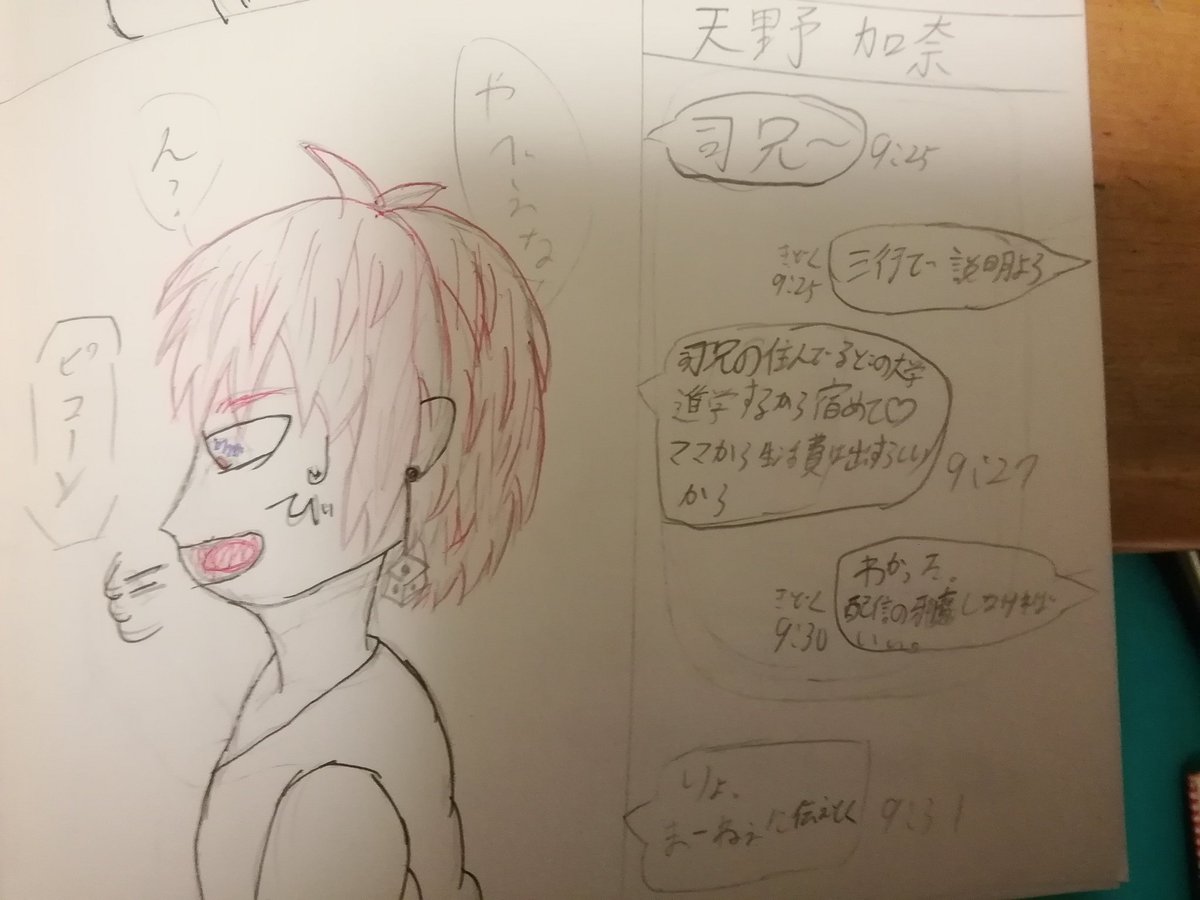 天野 加奈
司兄〜
9:25
きどく
9:25
三行で説明よろ
司兄の住んでるとこの大学
進学するから宿めて♡
ママから生活費は出すらしい
から
9:27
わかった。
配信の邪魔しなければ
いい。
きどく
9:30
りょ、
まーねぇに伝えとく
9:31
ん?
ピコーン